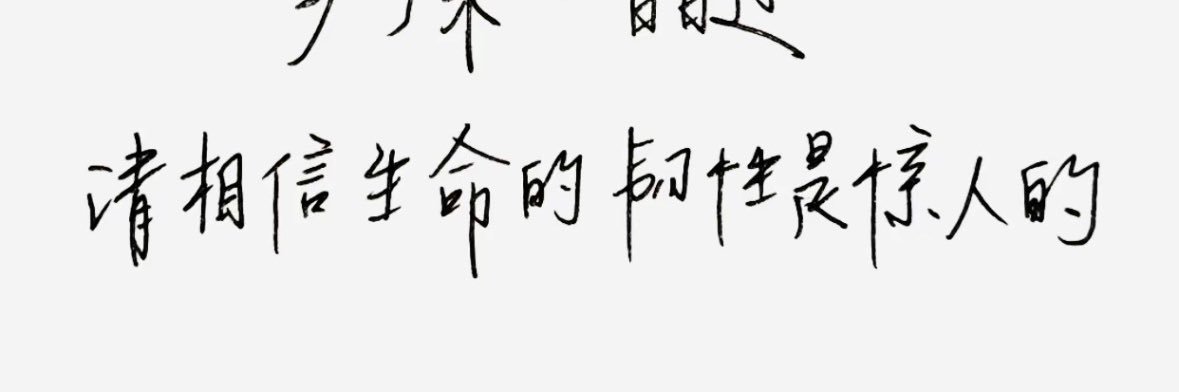 请相信生命的韧性是惊人的